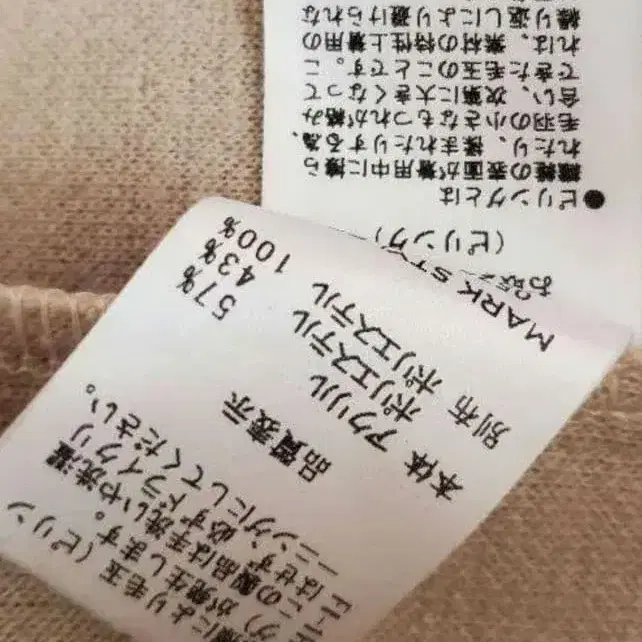 お取
(ピリング)
●ピリングとは
繊維の表面が着用中に擦ら
れたり、揉まれたりする為、
毛羽の小さなもつれが絡み
合い、次第に大きくなって
できた毛玉のことです。こ
れは、素材の特性上着用の
繰り返しにより避けられな
擦により毛玉(ピリン
グ)が発生します。
この製品は手洗いや洗濯
にはせず 必ずドライクリ
ーニングにしてください。
品質表示
本体 アクリル 57%
ポリエステル 43%
別布 ポリエステル 100%
MARK STY